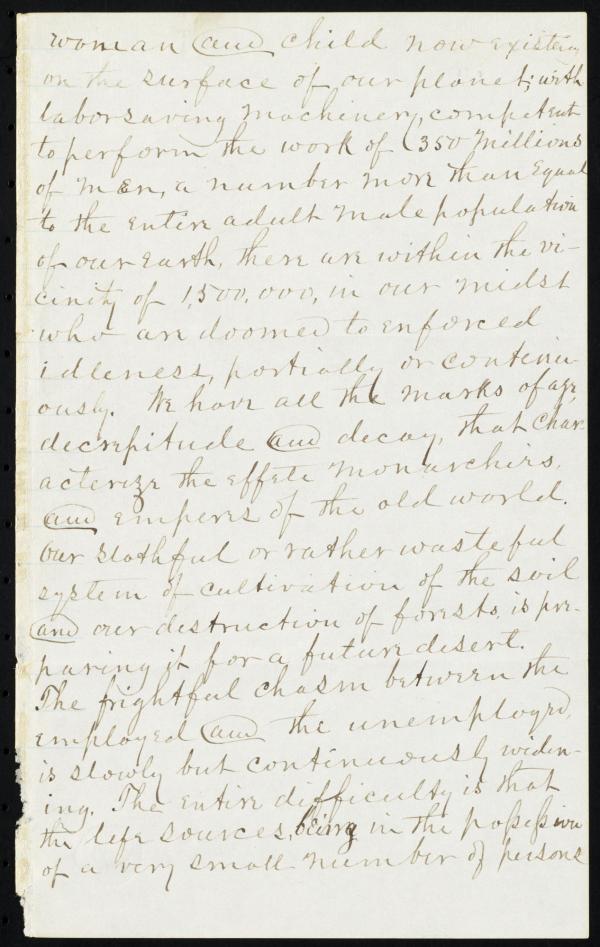 woman and child now existing
on the surface of our planet; with
laborsaving machinery, competent
to perform the work of 350 millions
of men, a number more than equal
to the entire adult male population
of our earth, there are within the vi-
cinity of 1,500,000, in our midst
who are doomed to enforced
idleness, partially or continu-
ously. We have all the marks of age,
decrepitude and decay, that char-
acterize the effete monarchies,
and emperes of the old world.
Our slothful or rather wasteful
system of cultivation of the soil
and our destruction of forests, is pre-
paring it for a future desert.
The frightful chasm between the
employed and the unemployed,
is slowly but continuously widen-
ing. The entire difficulty is that
the life sources, being in the possession
of a very small number of persons